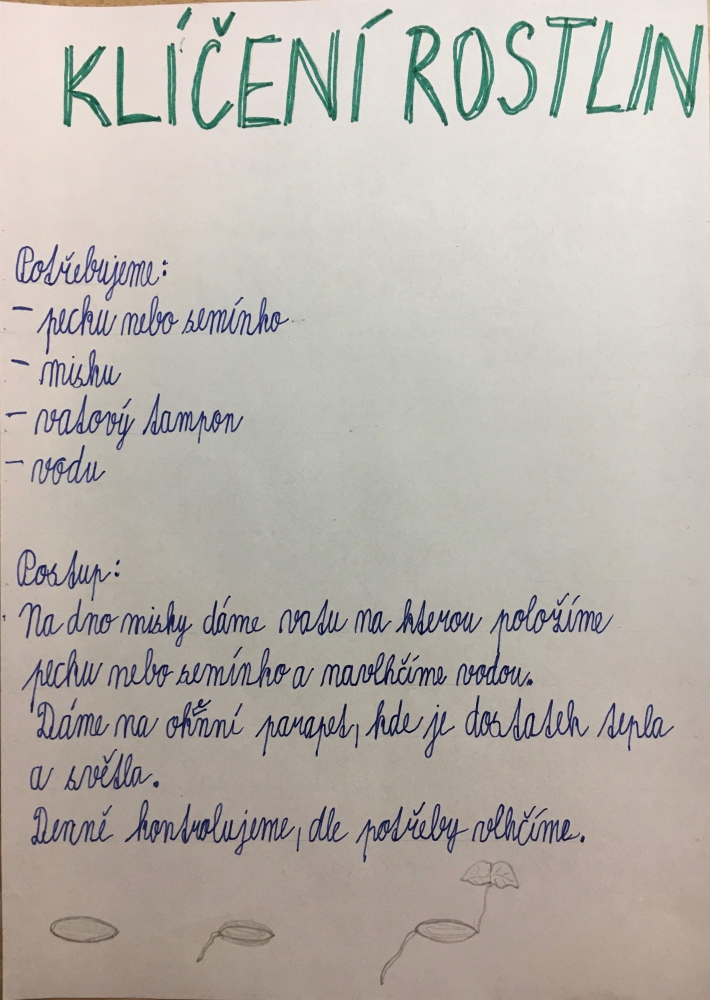 KLÍČENÍ ROSTLIN
Potřebujeme:
- pecku nebo semínko
- misku
- vatový tampon
- vodu
Postup:
Na dno misky dáme vatu na kterou položíme
pecku nebo semínko a navlhčíme vodou.
Dáme na okňní parapet, kde je dostatek tepla
a světla.
Denně kontrolujeme, dle potřeby vlhčíme.